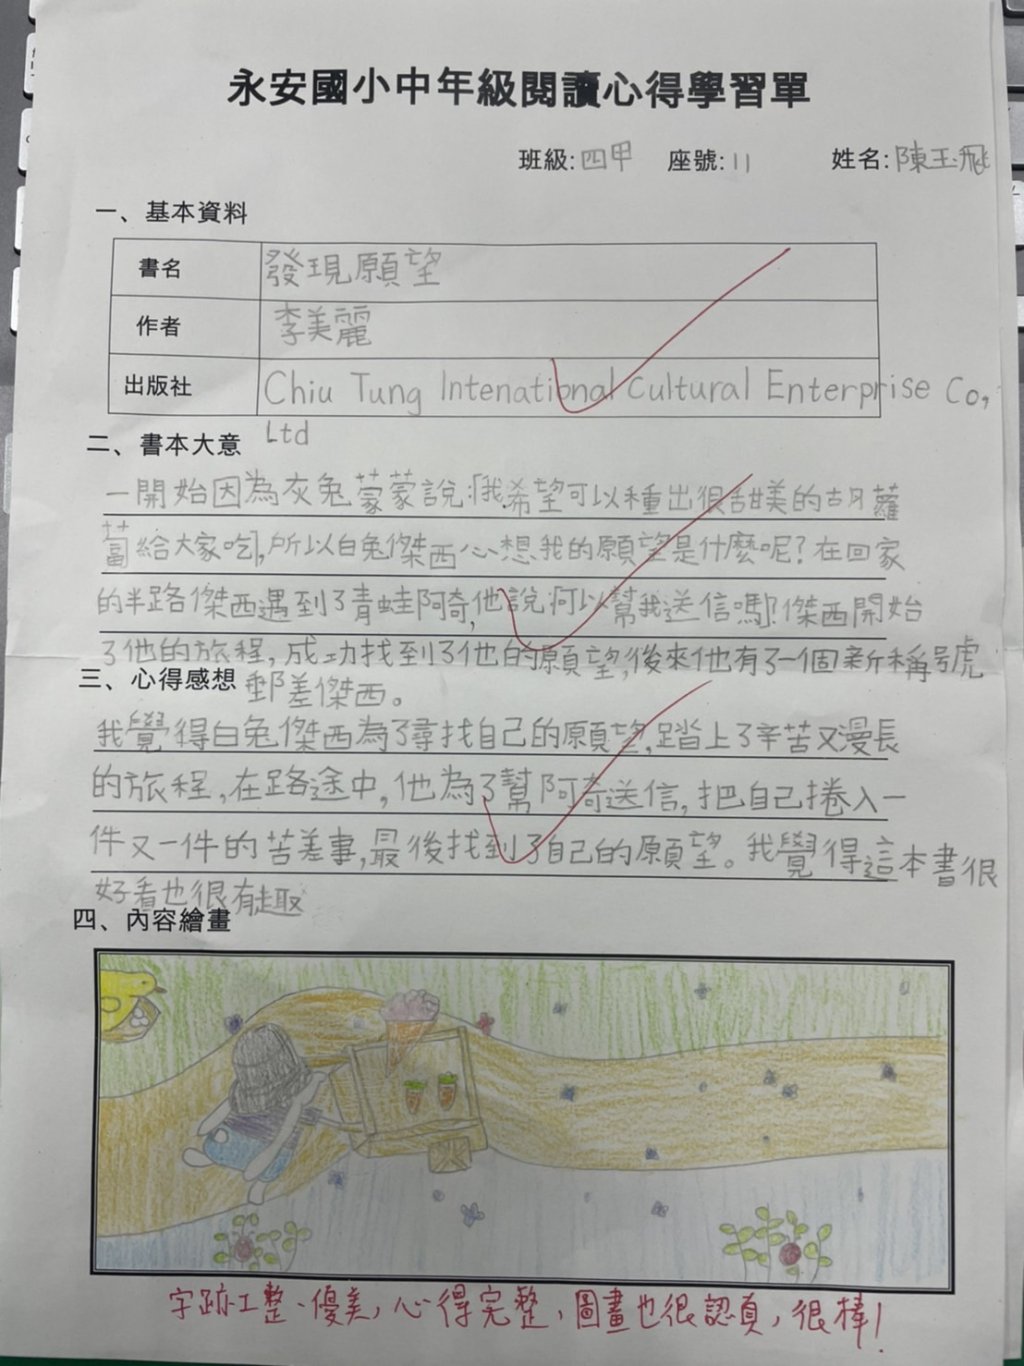 永安國小中年級閱讀心得學習單
班級:四甲 座號:11 姓名:陳玉飛
一、基本資料
書名 發現願望
作者 李美麗
出版社 Chiu Tung Intenational Cultural Enterprise Co,
Ltd
二、書本大意
一開始因為灰兔蒙蒙說:「我希望可以種出很甜美的胡蘿
蔔給大家吃」,所以白兔傑西心想我的願望是什麼呢?在回家
的半路傑西遇到了青蛙阿奇,他說「可以幫我送信嗎」?傑西開始
了他的旅程,成功找到了他的願望,後來他有了一個新稱號
郵差傑西。
三、心得感想
我覺得白兔傑西為了尋找自己的願望,踏上了辛苦又漫長
的旅程,在路途中,他為了幫阿奇送信,把自己捲入一
件又一件的苦差事,最後找到了自己的願望。我覺得這本書很
好看也很有趣
四、內容繪畫
字跡工整、優美,心得完整,圖畫也很認真,很棒!